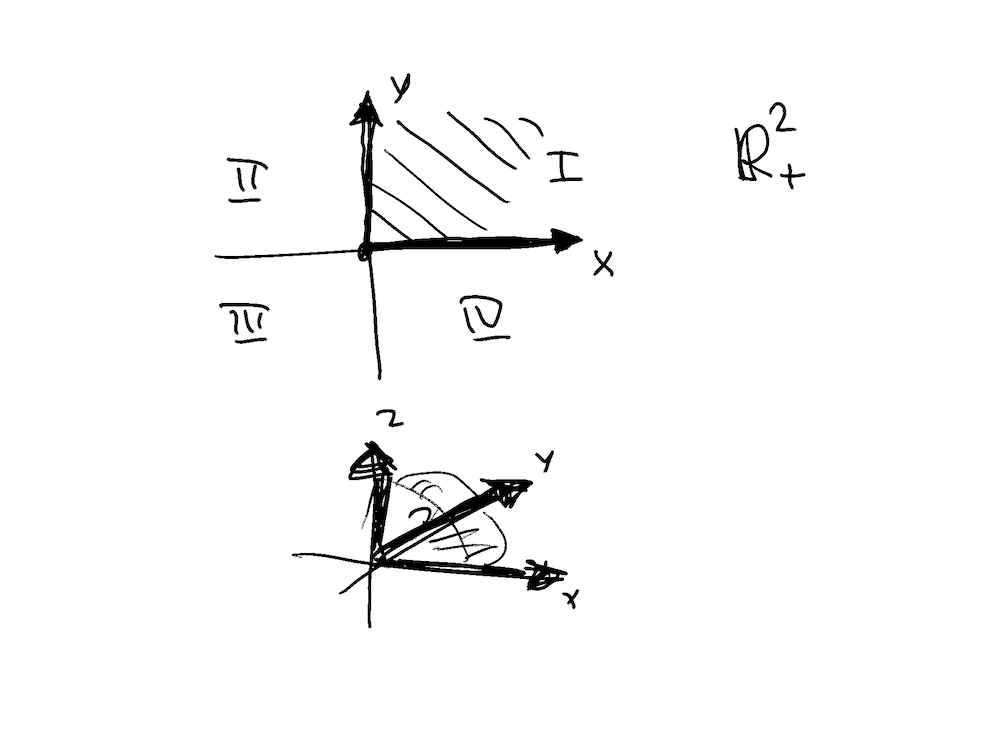 y
II
I
ℝ²₊
x
III
IV
z
y
x